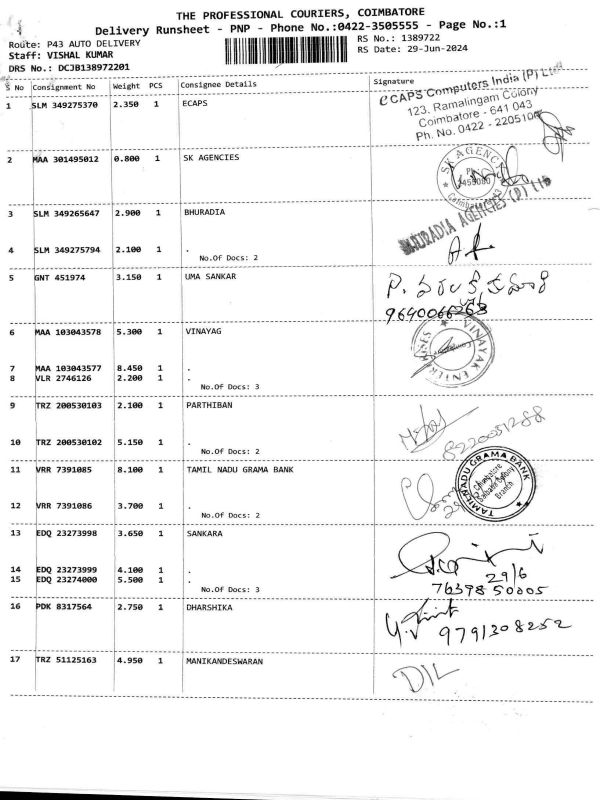 THE PROFESSIONAL COURIERS, COIMBATORE
Delivery Runsheet - PNP - Phone No.:0422-3505555 - Page No.:1
Route: P43 AUTO DELIVERY
RS No.: 1389722
Staff: VISHAL KUMAR
RS Date: 29-Jun-2024
DRS No.: DCJB138972201
S No Consignment No Weight PCS Consignee Details Signature
1 SLM 349275370 2.350 1 ECAPS
eCAPS Computers India (P) Ltd
123, Ramalingam Colony
Coimbatore - 641 043
Ph. No. 0422 - 2205100
2 MAA 301495012 0.800 1 SK AGENCIES
SK AGENC
3 SLM 349265647 2.900 1 BHURADIA
BHURADIA AGENCIES (P) Ltd
4 SLM 349275794 2.100 1 .
No.Of Docs: 2
5 GNT 451974 3.150 1 UMA SANKAR
6 MAA 103043578 5.300 1 VINAYAG
VINAYAK ENTERPRISES
7 MAA 103043577 8.450 1 .
8 VLR 2746126 2.200 1 .
No.Of Docs: 3
9 TRZ 200530103 2.100 1 PARTHIBAN
8220051288
10 TRZ 200530102 5.150 1 .
No.Of Docs: 2
11 VRR 7391085 8.100 1 TAMIL NADU GRAMA BANK
TAMILNADU GRAMA BANK
Coimbatore
Saibaba Colony
Branch
12 VRR 7391086 3.700 1 .
No.Of Docs: 2
13 EDQ 23273998 3.650 1 SANKARA
29/6
7639850005
14 EDQ 23273999 4.100 1 .
15 EDQ 23274000 5.500 1 .
No.Of Docs: 3
16 PDK 8317564 2.750 1 DHARSHIKA
9791308252
17 TRZ 51125163 4.950 1 MANIKANDESWARAN
DIL